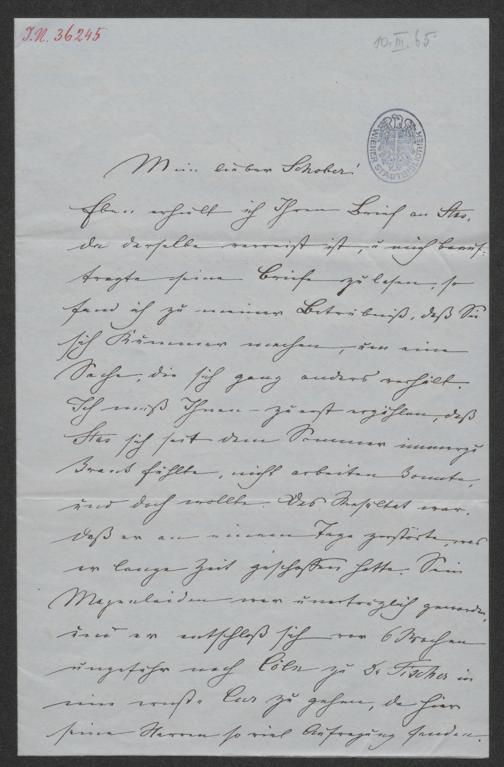 J.N. 36245
10. III. 65
WIENER STADTBIBLIOTHEK
Mein lieber Schober!
Eben erhielt ich Ihren Brief an Stas.
da derselbe verreist ist, u mich beauf-
tragte seine Briefe zu lesen, so
fand ich zu meiner Betrübniß, daß Sie
sich Kummer machen, um eine
Sache, die sich ganz anders verhält.
Ich muß Ihnen zuerst erzählen, daß
Stas sich seit dem Sommer immerzu
krank fühlte, nicht arbeiten konnte,
und doch wollte. Das Resultat war,
daß er an einem Tage zerstörte, was
er lange Zeit geschaffen hatte. Sein
Magenleiden war unerträglich geworden,
und er entschloß sich vor 6 Wochen
ungefähr nach Cöln zu Dr Fischer in
eine ernste Cur zu gehen, da hier
seine Nerven so viel Aufregung fanden.